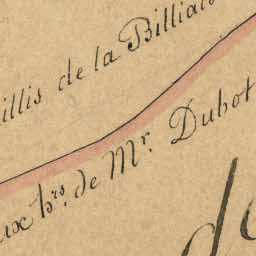 illis de la Billiais
ux hrs. de Mr. Dubot
de